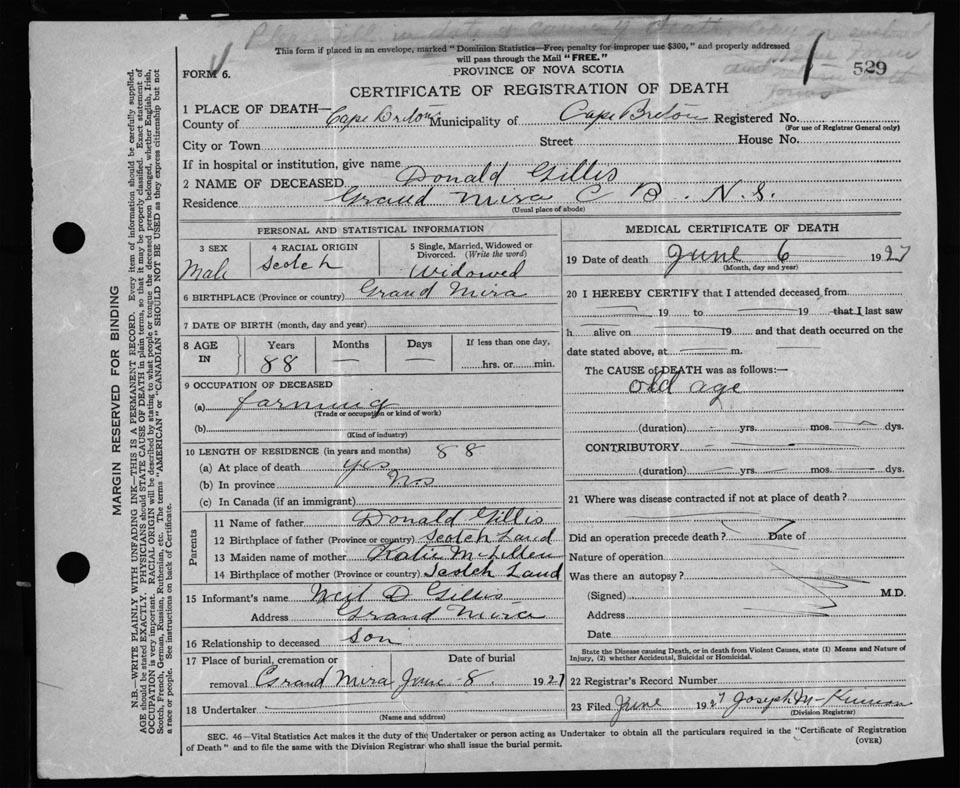 This form if placed in an envelope, marked "Dominion Statistics—Free, penalty for improper use $300," and properly addressed
will pass through the Mail "FREE."
FORM 6.
PROVINCE OF NOVA SCOTIA
529
CERTIFICATE OF REGISTRATION OF DEATH
1 PLACE OF DEATH—
County of Cape Breton Municipality of Cape Breton Registered No.
(For use of Registrar General only)
City or Town Street House No.
If in hospital or institution, give name
2 NAME OF DECEASED Donald Gillis
Residence Grand Mira C B. N.S.
(Usual place of abode)
PERSONAL AND STATISTICAL INFORMATION
3 SEX 4 RACIAL ORIGIN 5 Single, Married, Widowed or Divorced. (Write the word)
Male Scotch Widowed
6 BIRTHPLACE (Province or country) Grand Mira
7 DATE OF BIRTH (month, day and year)
8 AGE IN Years Months Days If less than one day,
88 — — hrs. or min.
9 OCCUPATION OF DECEASED
(a) farming
(Trade or occupation or kind of work)
(b)
(Kind of industry)
10 LENGTH OF RESIDENCE (in years and months) 88
(a) At place of death yes
(b) In province
(c) In Canada (if an immigrant)
Parents
11 Name of father Donald Gillis
12 Birthplace of father (Province or country) Scotch Land
13 Maiden name of mother Katie
14 Birthplace of mother (Province or country) Scotch Land
15 Informant's name Neil D. Gillis
Address Grand Mira
16 Relationship to deceased son
17 Place of burial, cremation or Date of burial
removal Grand Mira June 8. 1927
18 Undertaker
(Name and address)
MEDICAL CERTIFICATE OF DEATH
19 Date of death June 6 1927
(Month, day and year)
20 I HEREBY CERTIFY that I attended deceased from
19 to 19 that I last saw
h alive on 19 and that death occurred on the
date stated above, at m.
The CAUSE of DEATH was as follows:—
old age
(duration) yrs. mos. dys.
CONTRIBUTORY
(duration) yrs. mos. dys.
21 Where was disease contracted if not at place of death?
Did an operation precede death? Date of
Nature of operation
Was there an autopsy?
(Signed) M.D.
Address
Date
State the Disease causing Death, or in death from Violent Causes, state (1) Means and Nature of
Injury, (2) whether Accidental, Suicidal or Homicidal.
22 Registrar's Record Number
23 Filed June 1927 Joseph
(Division Registrar)
SEC. 46—Vital Statistics Act makes it the duty of the Undertaker or person acting as Undertaker to obtain all the particulars required in the "Certificate of Registration
of Death" and to file the same with the Division Registrar who shall issue the burial permit.
(OVER)
MARGIN RESERVED FOR BINDING
N.B.—WRITE PLAINLY WITH UNFADING INK—THIS IS A PERMANENT RECORD. Every item of information should be carefully supplied.
AGE should be stated EXACTLY. PHYSICIANS should STATE CAUSE OF DEATH in plain terms, so that it may be properly classified. Exact statement of
OCCUPATION is very important. RACIAL ORIGIN will be described by stating to what people or tongue the deceased person belonged, whether English, Irish,
Scotch, French, German, Russian, Ruthenian, etc. The terms "AMERICAN" or "CANADIAN" SHOULD NOT BE USED as they express citizenship but not
a race or people. See instructions on back of Certificate.